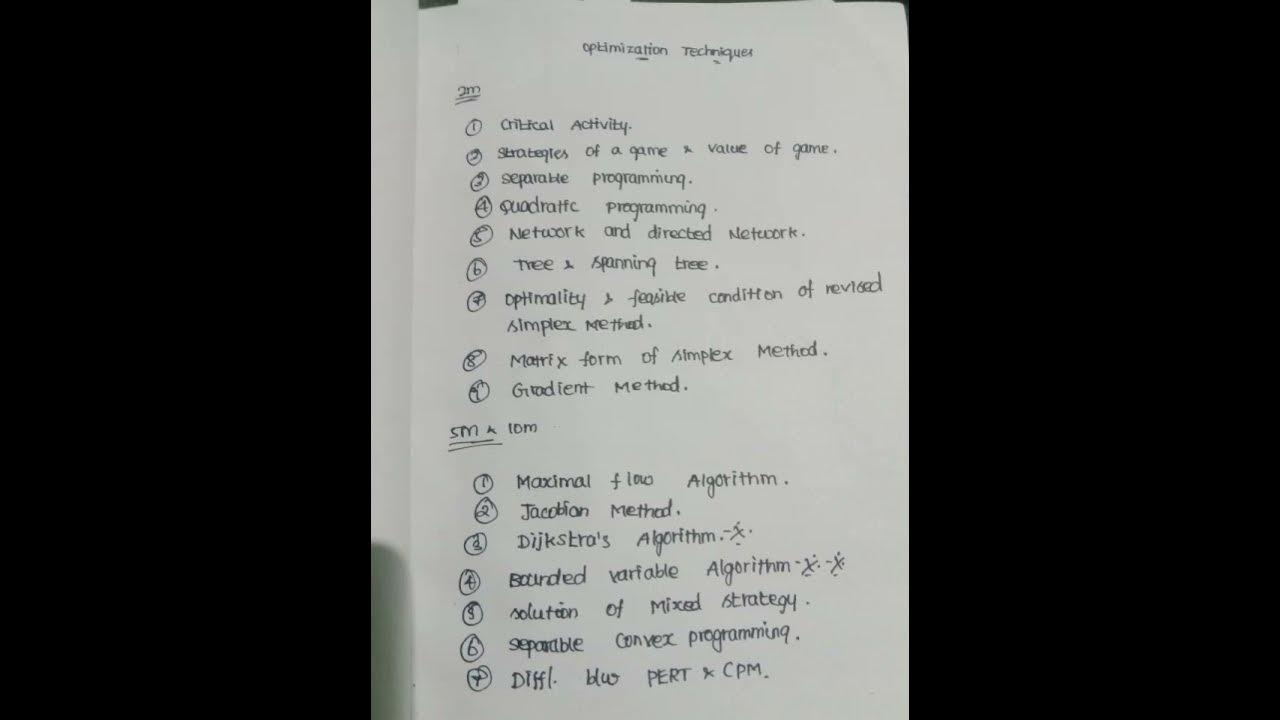 Optimization Techniques
2m
① Critical Activity.
② Strategies of a game & value of game.
③ Separable programming.
④ Quadratic programming.
⑤ Network and directed Network.
⑥ Tree & spanning tree.
⑦ Optimality & feasible condition of revised
simplex Method.
⑧ Matrix form of simplex Method.
⑨ Gradient Method.
5M & 10m
① Maximal flow Algorithm.
② Jacobian Method.
③ Dijkstra's Algorithm.
④ Bounded variable Algorithm
⑤ solution of Mixed strategy.
⑥ separable convex programming.
⑦ Diff. b/w PERT & CPM.